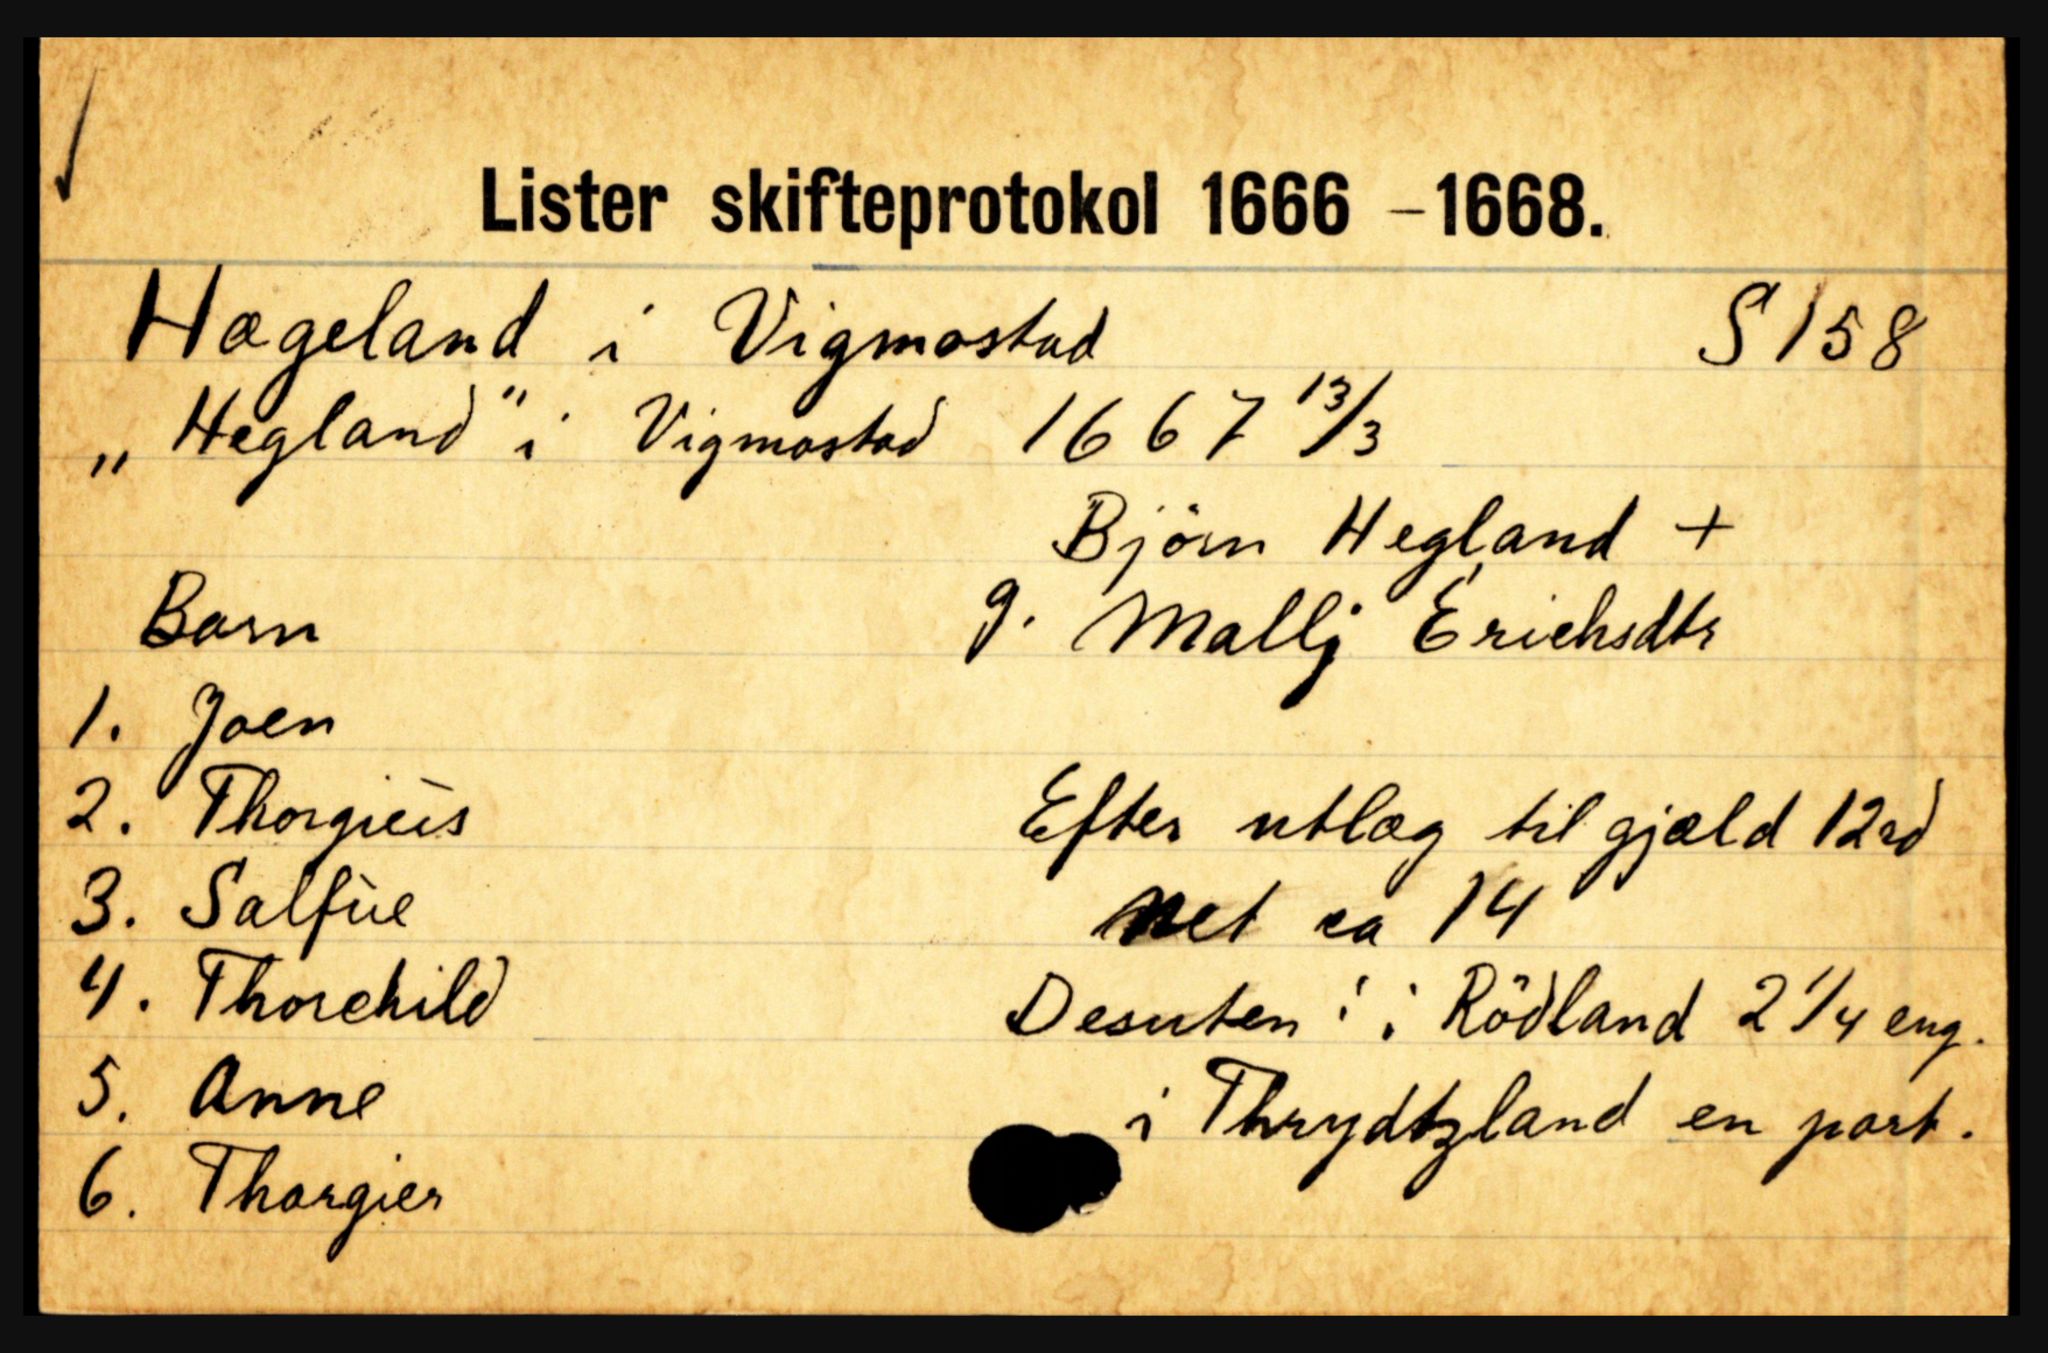 Lister skifteprotokol 1666 - 1668.
Hægeland i Vigmostad S 158
„Hegland" i Vigmostad 1667 13/3
Björn Hegland +
Barn g. Mallj Erichsdtr
1. Joen
2. Thorgiùs Efter utlæg til gjæld 12 rd
3. Salfùe net ca 14
4. Thorchild Desuten: i Rödland 2 1/4 eng.
5. Anne i Thrydtzland en part.
6. Thorgier